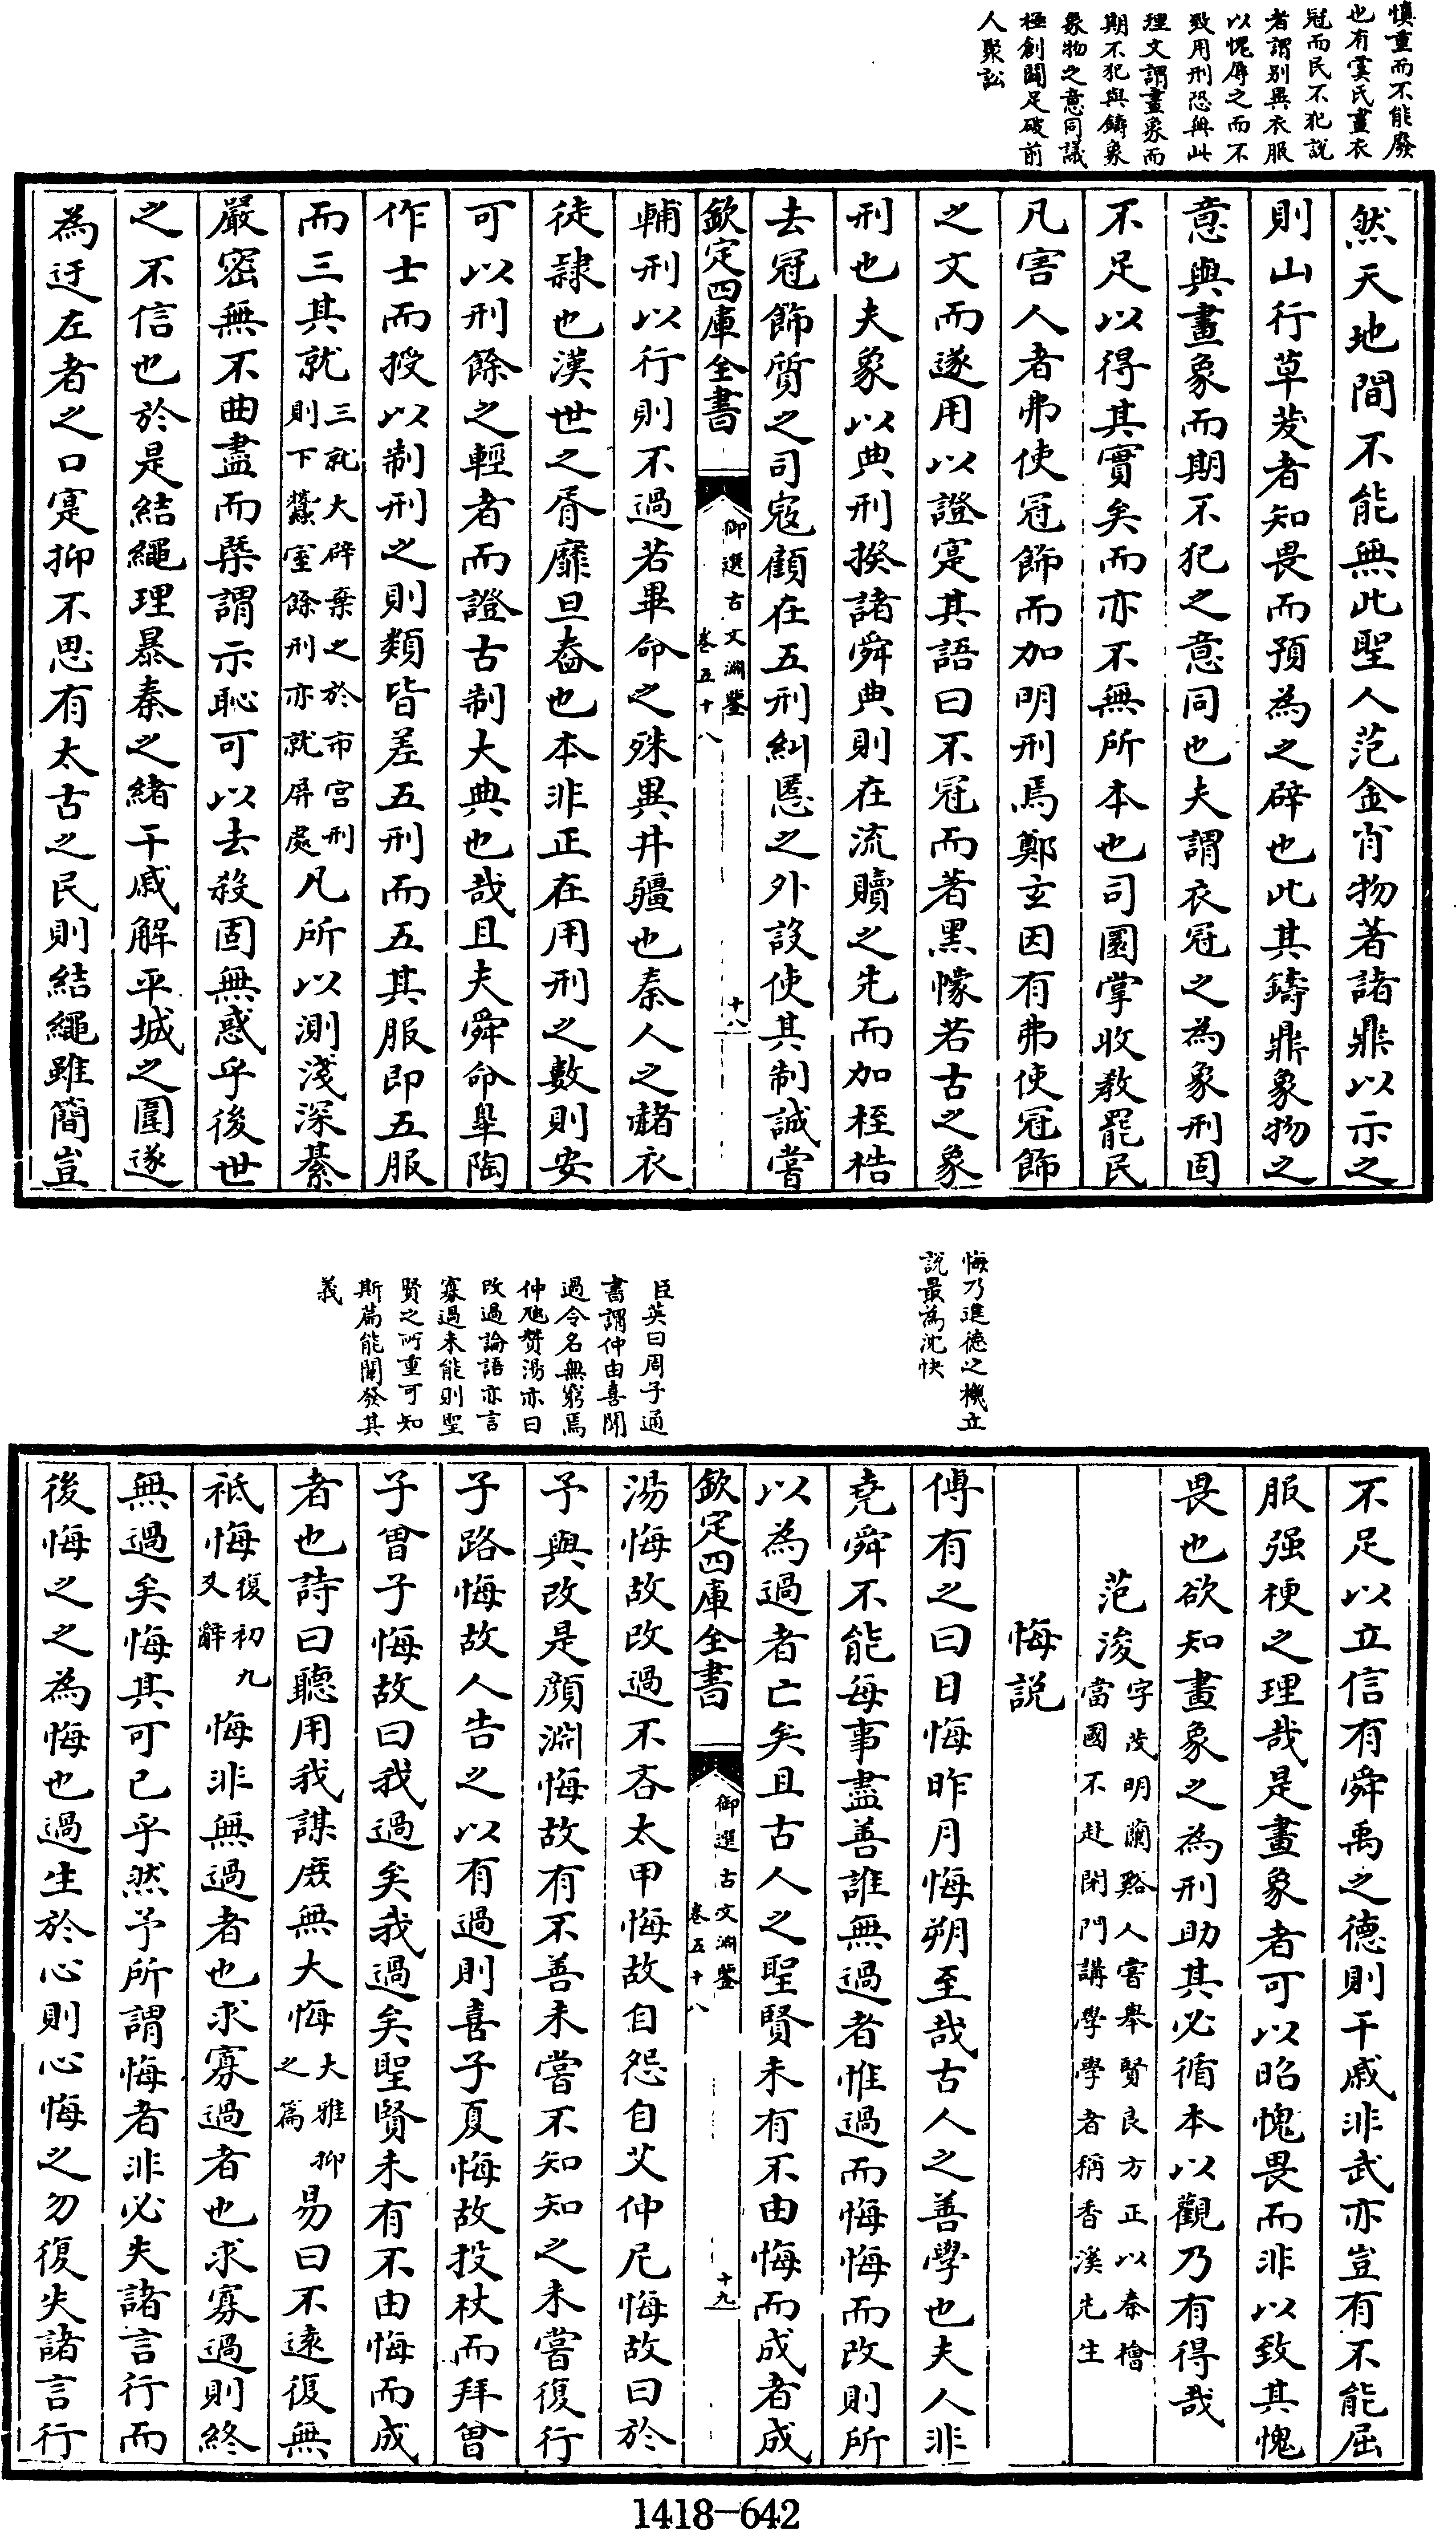 慎重而不能廢
也有虞氏畫衣
冠而民不犯說
者謂别異衣服
以愧辱之而不
致用刑恐與此
理文謂畫象而
期不犯與鑄象
象物之意同議
極創闢足破前
人聚訟
然天地間不能無此聖人范金肖物著諸鼎以示之
則山行草茇者知畏而預為之辟也此其鑄鼎象物之
意與畫象而期不犯之意同也夫謂衣冠之為象刑固
不足以得其實矣而亦不無所本也司圜掌收教罷民
凡害人者弗使冠飾而加明刑焉鄭玄因有弗使冠飾
之文而遂用以證寔其語曰不冠而著黑幪若古之象
刑也夫象以典刑揆諸舜典則在流贖之先而加桎梏
去冠飾質之司寇顧在五刑糾慝之外設使其制誠嘗
欽定四庫全書
御選古文淵鑒
卷五十八
十八
輔刑以行則不過若畢命之殊異井疆也秦人之赭衣
徒隷也漢世之胥靡旦舂也本非正在用刑之數則安
可以刑餘之輕者而證古制大典也哉且夫舜命臯陶
作士而授以制刑之則類皆差五刑而五其服即五服
而三其就三就大辟棄之於市宮刑則下蠶室餘刑亦就屏處凡所以測淺深綦
嚴密無不曲盡而槩謂示恥可以去殺固無惑乎後世
之不信也於是結繩理暴秦之緒干戚解平城之圍遂
為迂左者之口寔抑不思有太古之民則結繩雖簡豈
悔乃進徳之機立
說最為沈快
臣英曰周子通
書謂仲由喜聞
過令名無窮焉
仲虺贊湯亦曰
改過論語亦言
寡過未能則聖
賢之所重可知
斯篇能闡發其
義
不足以立信有舜禹之德則干戚非武亦豈有不能屈
服强梗之理哉是畫象者可以昭愧畏而非以致其愧
畏也欲知畫象之為刑助其必循本以觀乃有得哉
范浚字茂明蘭谿人嘗舉賢良方正以秦檜當國不赴閉門講學學者稱香溪先生
悔説
傅有之曰日悔昨月悔朔至哉古人之善學也夫人非
堯舜不能每事盡善誰無過者惟過而悔悔而改則所
以為過者亡矣且古人之聖賢未有不由悔而成者成
欽定四庫全書
御選古文淵鑒
卷五十八
十九
湯悔故改過不吝太甲悔故自怨自艾仲尼悔故曰於
予與改是顔淵悔故有不善未嘗不知知之未嘗復行
子路悔故人告之以有過則喜子夏悔故投杖而拜曾
子曾子悔故曰我過矣我過矣聖賢未有不由悔而成
者也詩曰聽用我謀庶無大悔大雅抑之篇易曰不遠復無
祇悔復初九爻辭悔非無過者也求寡過者也求寡過則終
無過矣悔其可已乎然予所謂悔者非必失諸言行而
後悔之之為悔也過生於心則心悔之勿復失諸言行
1418-642